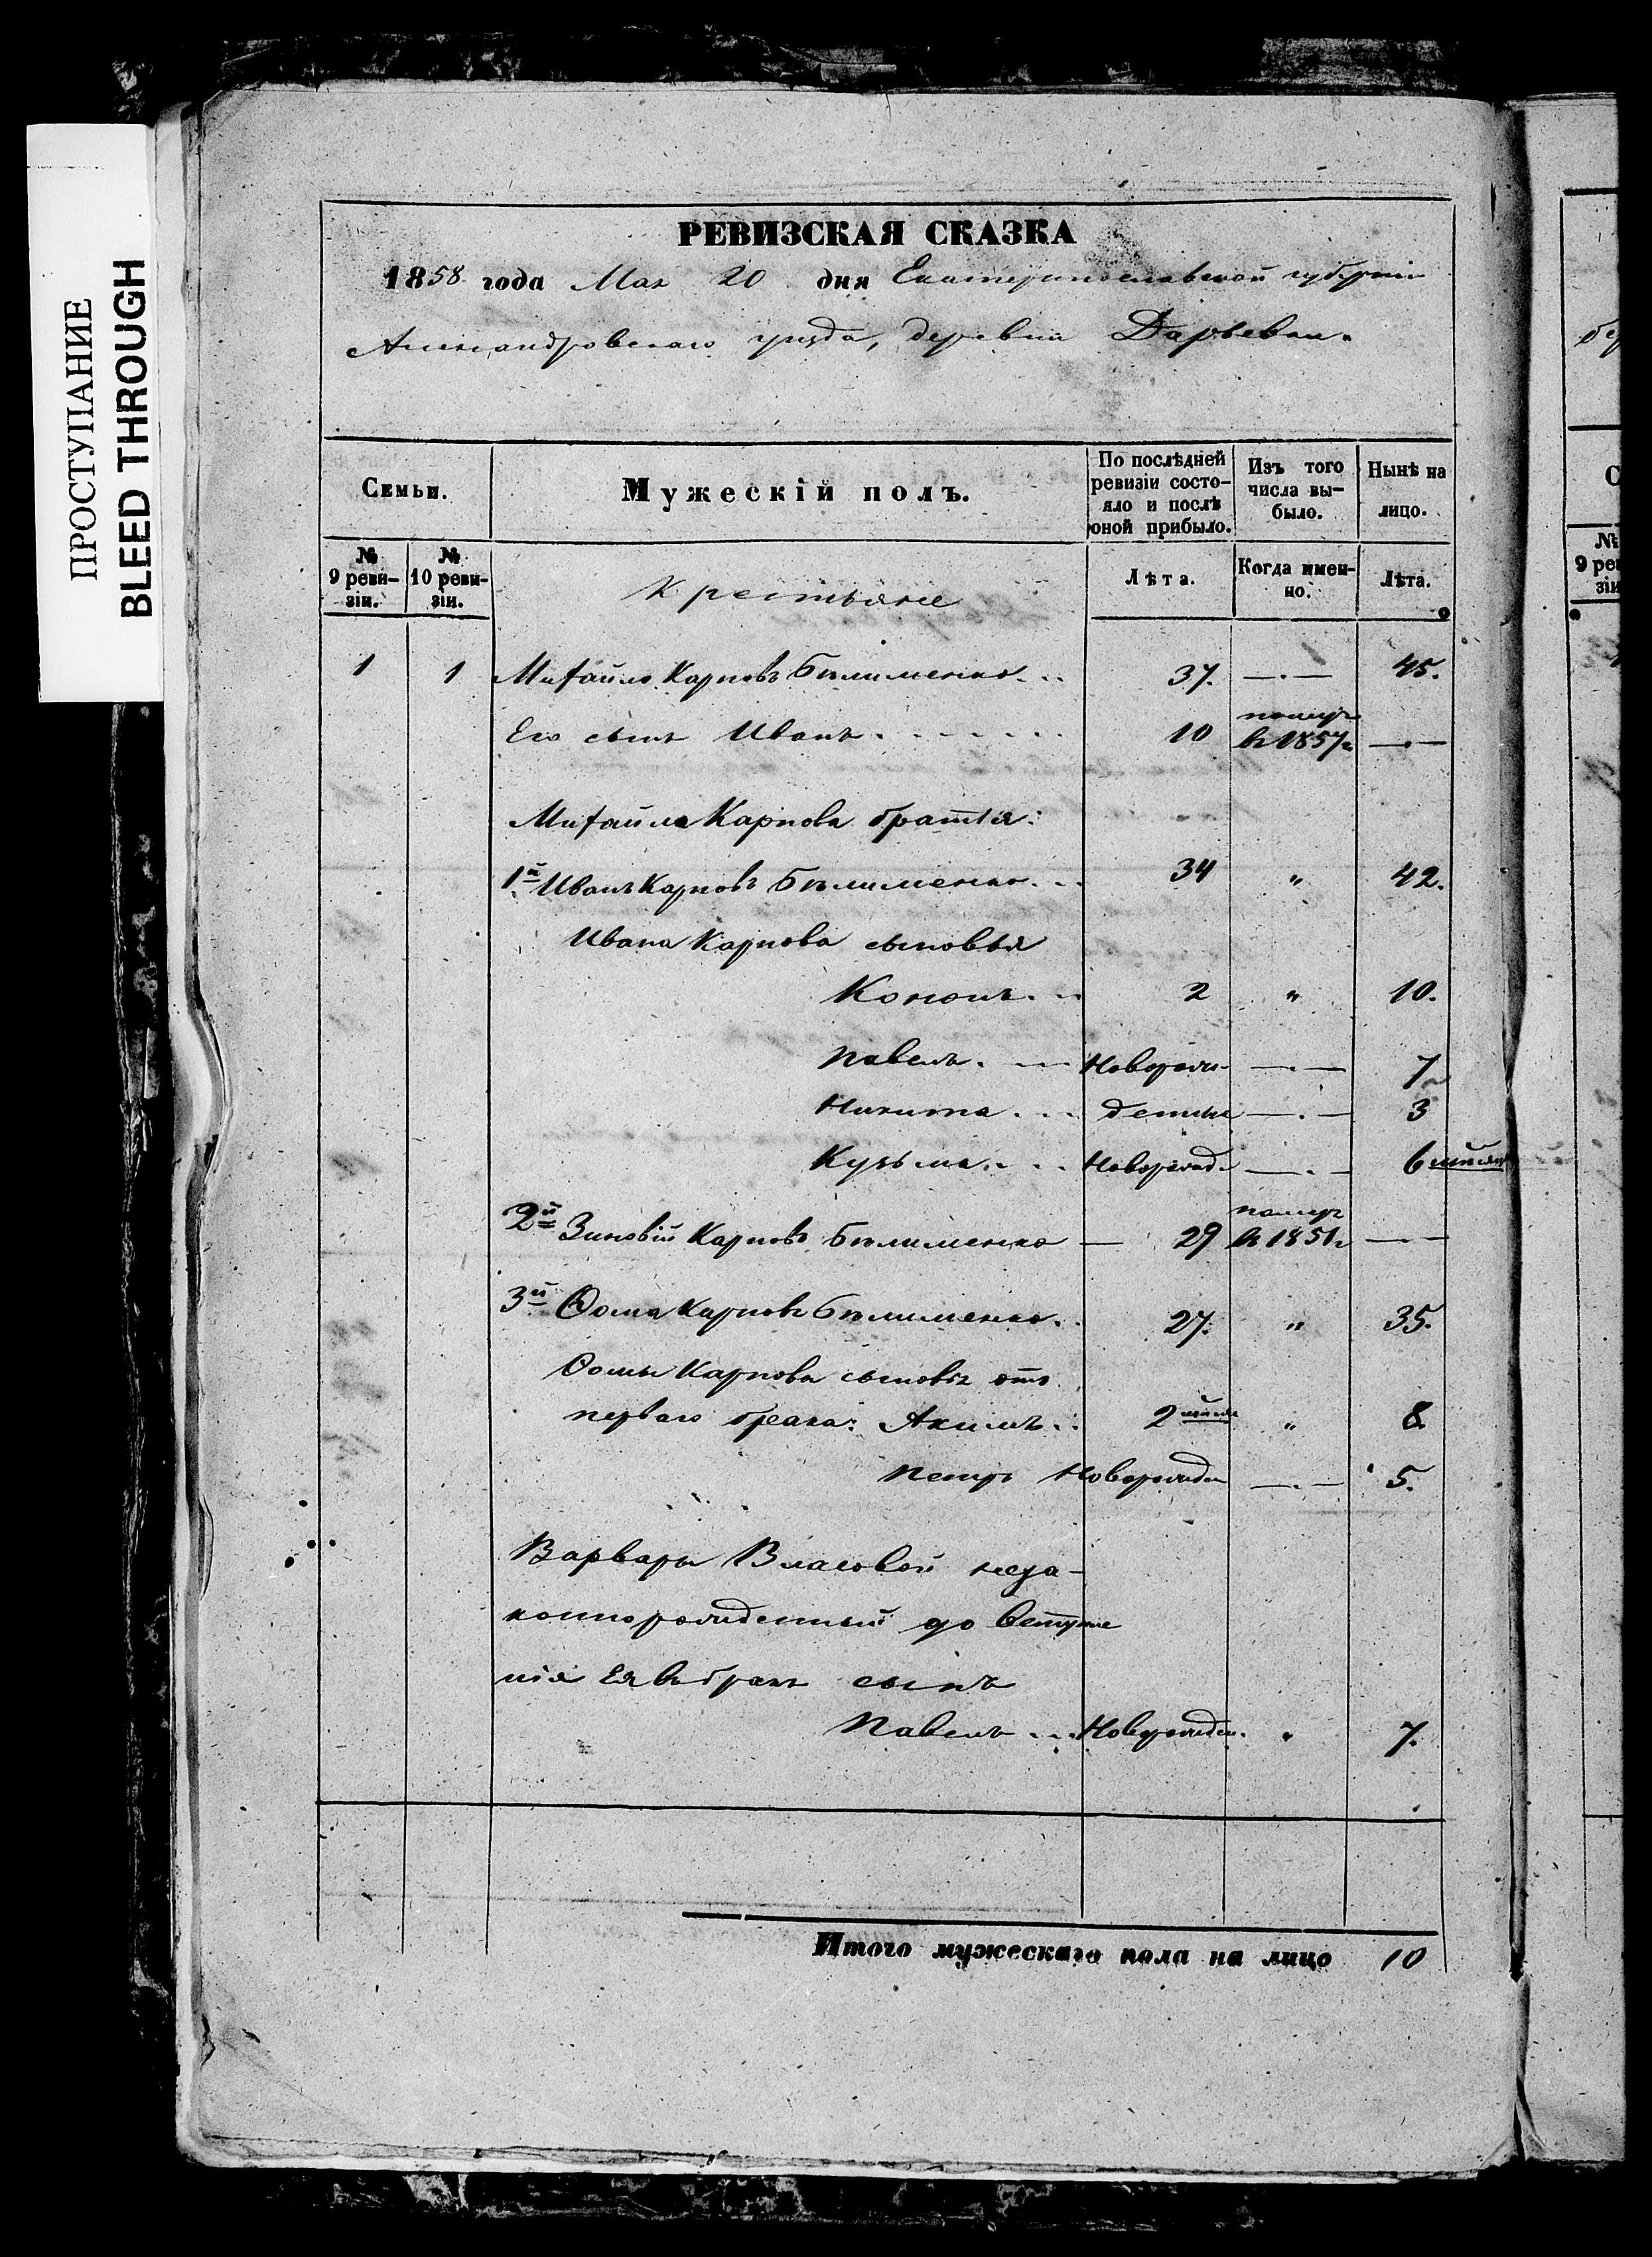 ПРОСТУПАНИЕ
BLEED THROUGH
РЕВИЗСКАЯ СКАЗКА
1858 года Мая 20 дня Екатеринославской губерніи
Александровскаго уѣзда, деревни Дарьевки.
Семьи.
Мужескій полъ.
По послѣдней ревизіи состо-яло и послѣ оной прибыло.
Изъ того числа вы-было.
Нынѣ на лицо.
№ 9 реви-зіи.
№ 10 реви-зіи.
Крестьяне
Лѣта.
Когда имен-но.
Лѣта.
1 1 Михайло Карповъ Бѣлименко 37. —.— 45.
Его сынъ Иванъ 10 померъ въ 1857г —.—
Михайла Карпова братья:
1й Иванъ Карповъ Бѣлименко 34 " 42.
Ивана Карпова сыновья
Кононъ 2 " 10.
Павелъ Новорож- —.— 7
Никита денные —.— 3
Кузьма Новорожд. —.— 6 мѣсяц
2й Зиновій Карповъ Бѣлименко — 29 померъ въ 1851г —.—
3й Ѳома Карповъ Бѣлименко 27. " 35.
Ѳомы Карпова сыновья отъ
перваго брака: Акимъ 2 мѣсяц " 8.
Петръ Новорожден —.— 5.
Варвары Власовой неза-
коннорожденный до вступле
нія Ея въ бракъ сынъ
Павелъ Новорожден. " 7.
Итого мужескаго пола на лицо 10
№
9 рев
зіи